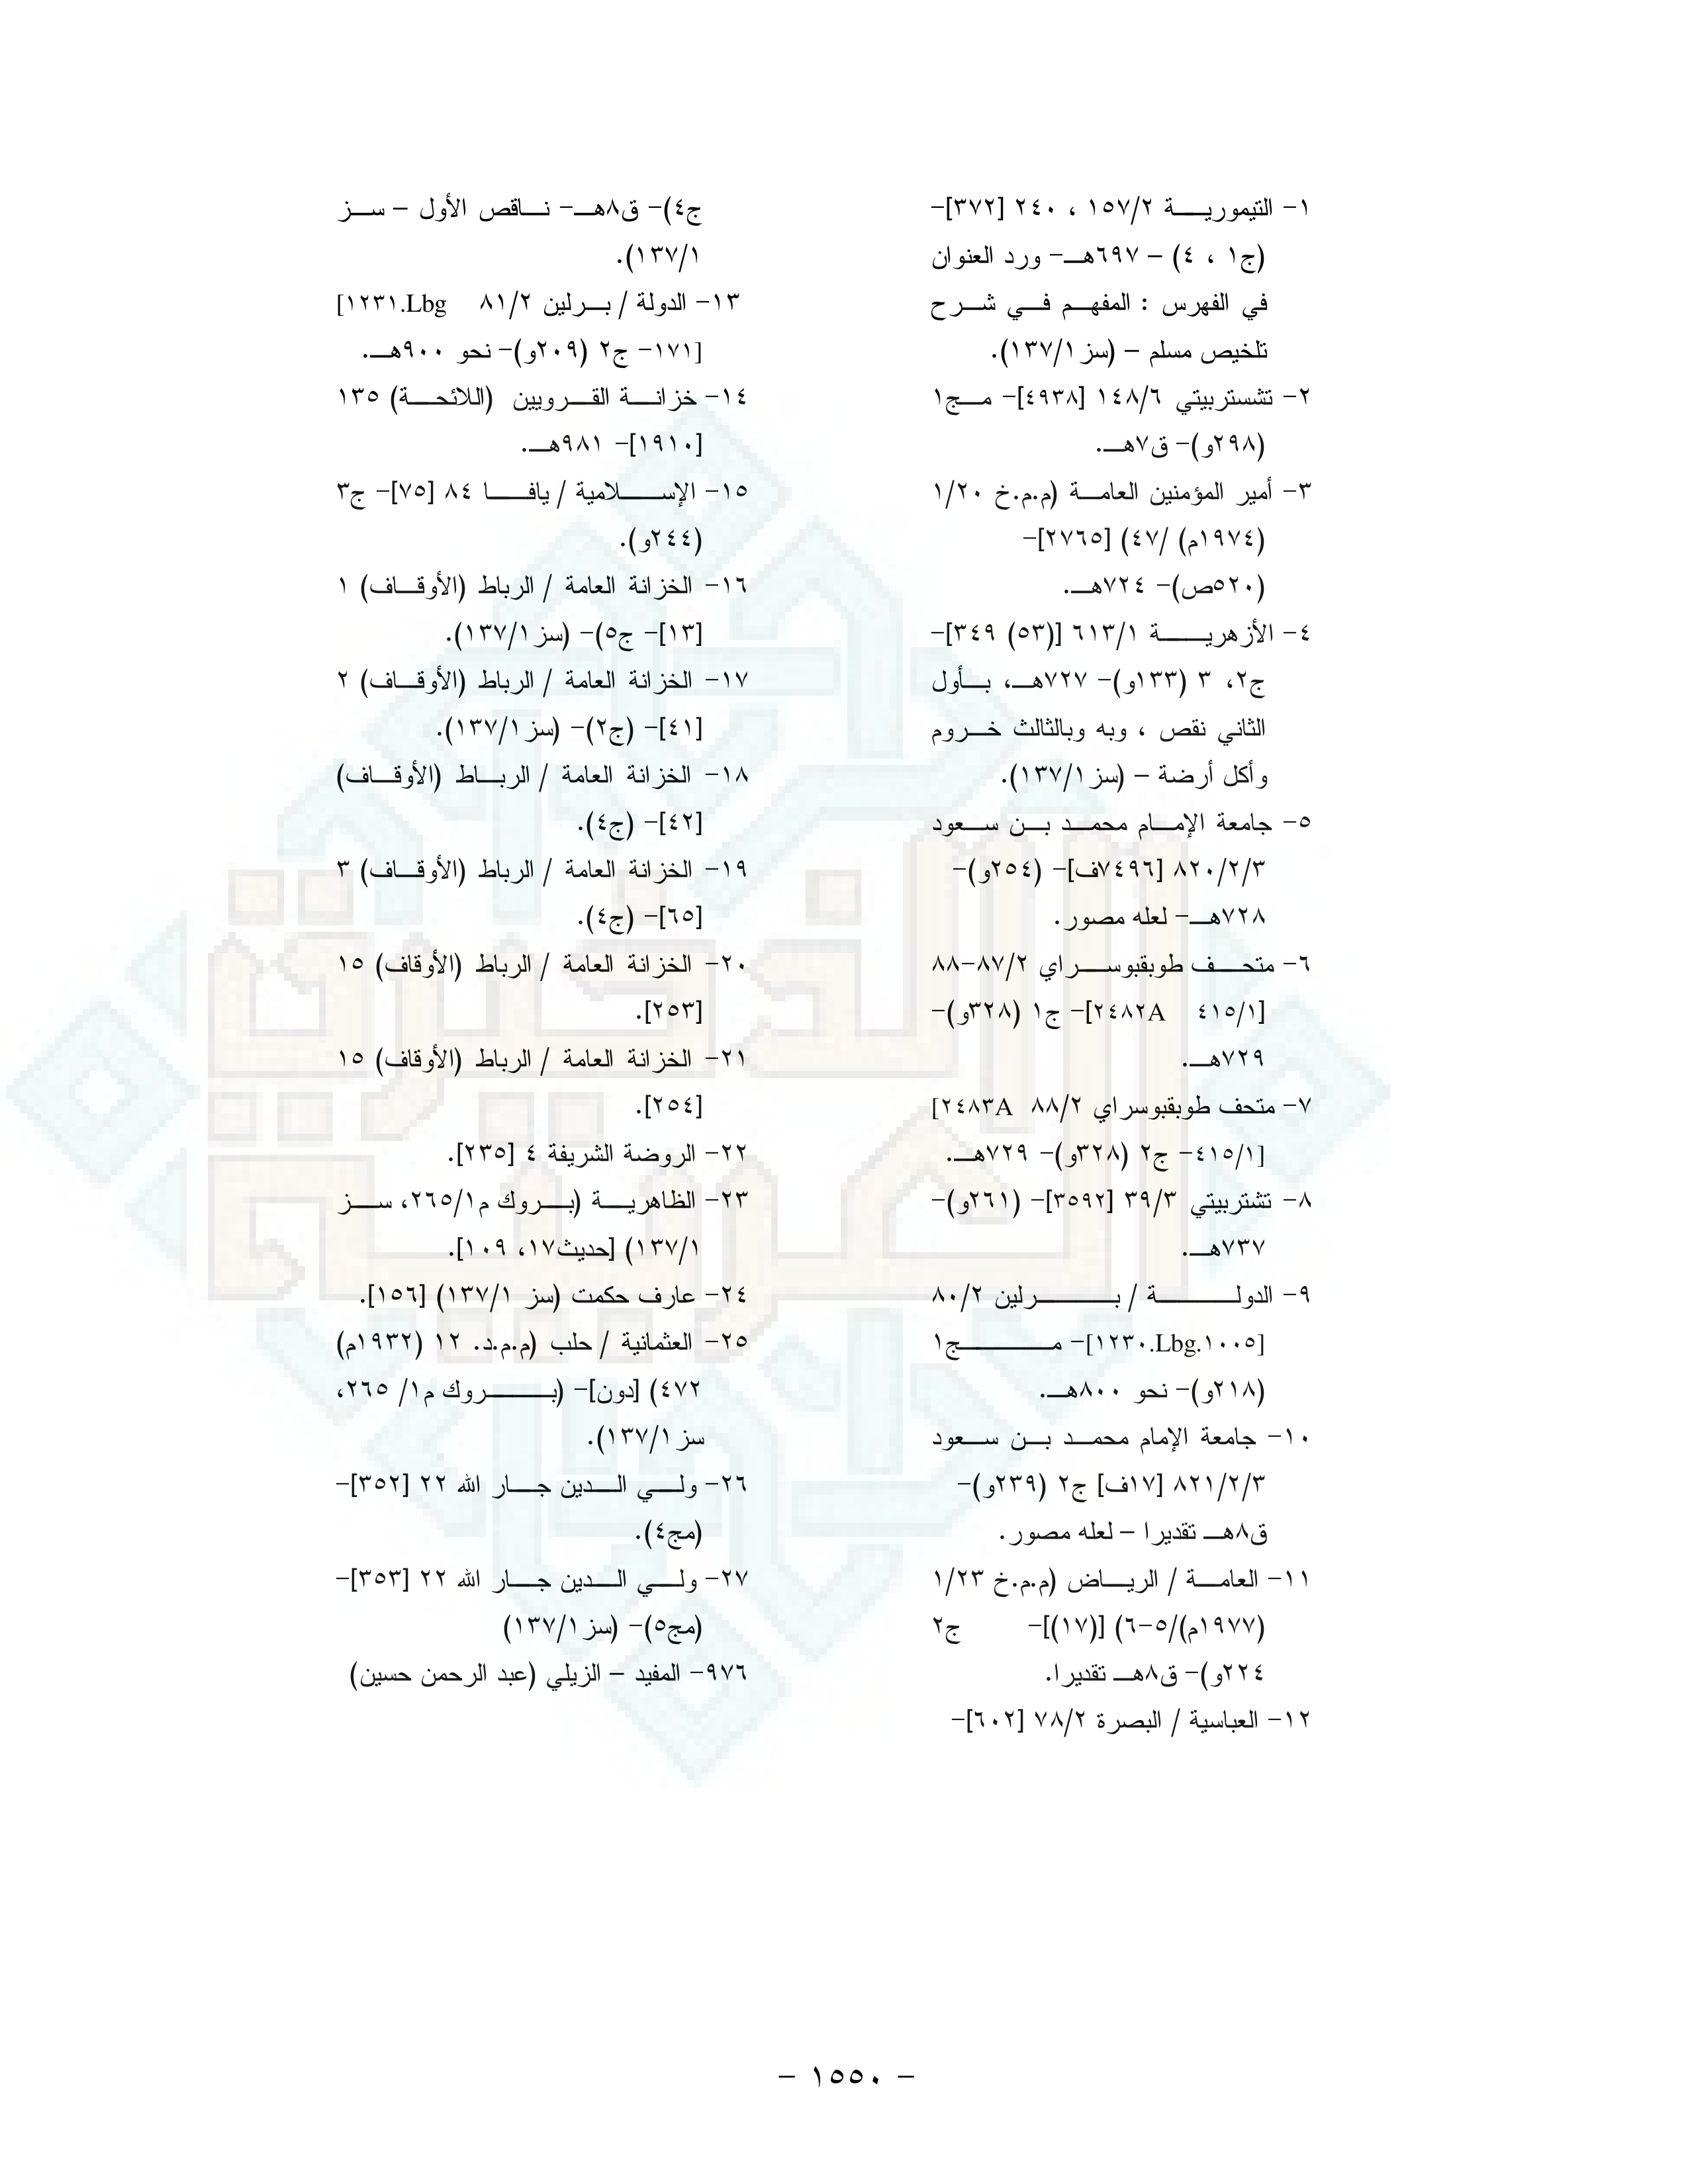 ١- التيمورية ١٥٧/٢ ، ٢٤٠ [٣٧٢]-
(ج١ ، ٤) – ٦٩٧هـ- ورد العنوان
في الفهرس : المفهم في شرح
تلخيص مسلم – (سز١٣٧/١).
٢- تشستربيتي ١٤٨/٦ [٤٩٣٨]- مج١
(٢٩٨و)- ق٧هـ.
٣- أمير المؤمنين العامة (م.م.خ ١/٢٠
(١٩٧٤م) /٤٧) [٢٧٦٥]-
(٥٢٠ص)- ٧٢٤هـ.
٤- الأزهرية ٦١٣/١ [(٥٣) ٣٤٩]-
ج٢، ٣ (١٣٣و)- ٧٢٧هـ، بأول
الثاني نقص ، وبه وبالثالث خروم
وأكل أرضة – (سز١٣٧/١).
٥- جامعة الإمام محمد بن سعود
٨٢٠/٢/٣ [٧٤٩٦ف]- (٢٥٤و)-
٧٢٨هـ- لعله مصور.
٦- متحف طوبقبوسراي ٨٧/٢-٨٨
[٤١٥/١ ٢٤٨٢A]- ج١ (٣٢٨و)-
٧٢٩هـ.
٧- متحف طوبقبوسراي ٨٨/٢ ٢٤٨٣A]
[٤١٥/١- ج٢ (٣٢٨و)- ٧٢٩هـ.
٨- تشتربيتي ٣٩/٣ [٣٥٩٢]- (٢٦١و)-
٧٣٧هـ.
٩- الدولة / برلين ٨٠/٢
[١٢٣٠.Lbg.١٠٠٥]- مج١
(٢١٨و)- نحو ٨٠٠هـ.
١٠- جامعة الإمام محمد بن سعود
٨٢١/٢/٣ [١٧ف] ج٢ (٢٣٩و)-
ق٨هـ تقديرا – لعله مصور.
١١- العامة / الرياض (م.م.خ ١/٢٣
(١٩٧٧م)/٥-٦) [(١٧)]- ج٢
٢٢٤و)- ق٨هـ تقديرا.
١٢- العباسية / البصرة ٧٨/٢ [٦٠٢]-
ج٤)- ق٨هـ- ناقص الأول – سز
١٣٧/١).
١٣- الدولة / برلين ٨١/٢ ١٢٣١.Lbg]
[١٧١- ج٢ (٢٠٩و)- نحو ٩٠٠هـ.
١٤- خزانة القرويين (اللائحة) ١٣٥
[١٩١٠]- ٩٨١هـ.
١٥- الإسلامية / يافا ٨٤ [٧٥]- ج٣
(٢٤٤و).
١٦- الخزانة العامة / الرباط (الأوقاف) ١
[١٣]- ج٥)- (سز١٣٧/١).
١٧- الخزانة العامة / الرباط (الأوقاف) ٢
[٤١]- (ج٢)- (سز١٣٧/١).
١٨- الخزانة العامة / الرباط (الأوقاف)
[٤٢]- (ج٤).
١٩- الخزانة العامة / الرباط (الأوقاف) ٣
[٦٥]- (ج٤).
٢٠- الخزانة العامة / الرباط (الأوقاف) ١٥
[٢٥٣].
٢١- الخزانة العامة / الرباط (الأوقاف) ١٥
[٢٥٤].
٢٢- الروضة الشريفة ٤ [٢٣٥].
٢٣- الظاهرية (بروك م٢٦٥/١، سز
١٣٧/١) [حديث١٧، ١٠٩].
٢٤- عارف حكمت (سز ١٣٧/١) [١٥٦].
٢٥- العثمانية / حلب (م.م.د. ١٢ (١٩٣٢م)
٤٧٢) [دون]- (بروك م١/ ٢٦٥،
سز١٣٧/١).
٢٦- ولي الدين جار الله ٢٢ [٣٥٢]-
(مج٤).
٢٧- ولي الدين جار الله ٢٢ [٣٥٣]-
(مج٥)- (سز١٣٧/١)
٩٧٦- المفيد – الزيلي (عبد الرحمن حسين)
- ١٥٥٠ -
الذخيرة
العربية